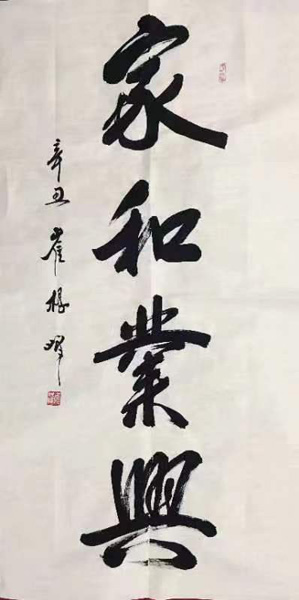 家和業興
辛丑 崔